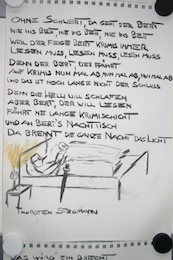 OHNE SCHWERT, DA GEHT DER BERT
NIE INS BETT, NIE INS BETT, NIE INS BETT
WEIL DER FEIGE BERT KRIMIS IMMER
LESEN MUSS, LESEN MUSS, LESEN MUSS
DENN DER BERT, DER FÄHRT
AUF KRIMIS NUN MAL AB, NUN MAL AB, NUN MAL AB
UND DAS IST NOCH LANGE NICHT DER SCHLUSS
DENN DIE HELLI WILL SCHLAFEN
ABER BERT, DER WILL LESEN
FÄHRT NE LANGE KRIMISCHICHT
UND AN BERT'S NACHTTISCH
DA BRENNT DIE GANZE NACHT DAS LICHT
THORSTEN STEGMANN
WAS WÄRE EIN BRECHT